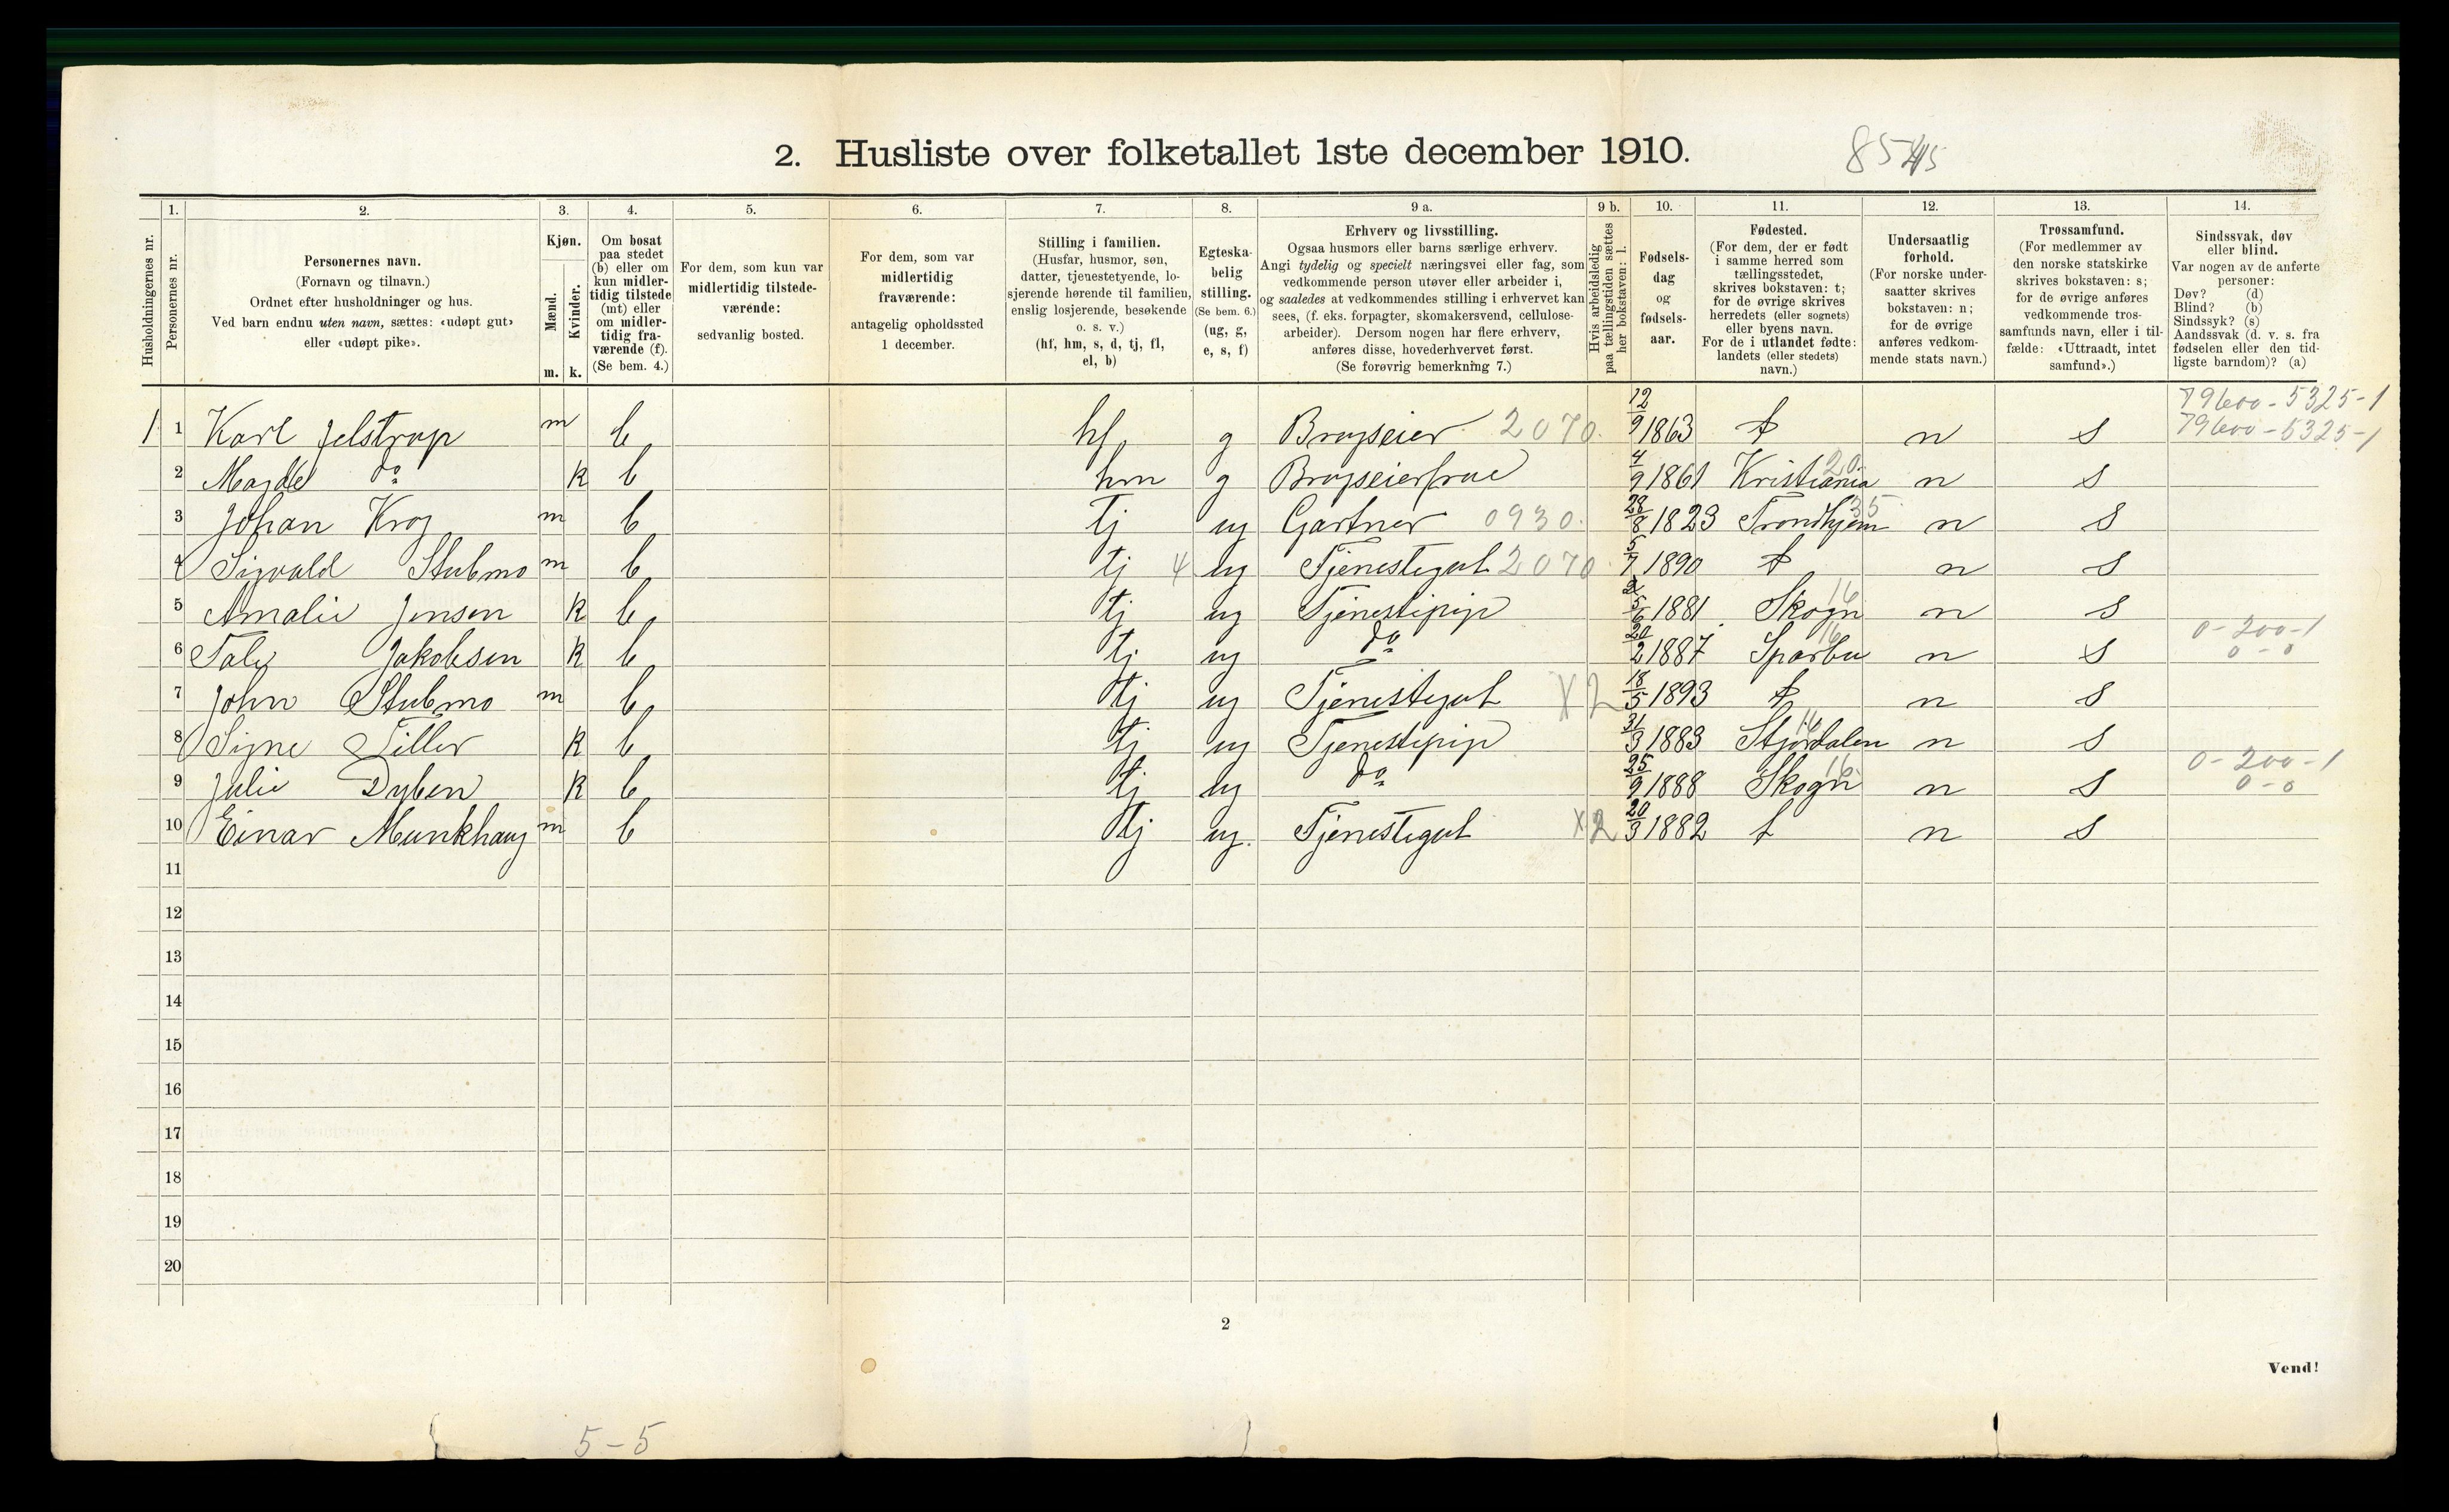 2. Husliste over folketallet 1ste december 1910.
Husholdningernes nr.
1.
Personernes nr.
2.
Personernes navn.
(Fornavn og tilnavn.)
Ordnet efter husholdninger og hus.
Ved barn endnu uten navn, sættes: «udøpt gut»
eller «udøpt pike».
3.
Kjøn.
Mænd.
Kvinder.
m. k.
4.
Om bosat
paa stedet
(b) eller om
kun midler-
tidig tilstede
(mt) eller
om midler-
tidig fra-
værende (f).
(Se bem. 4.)
5.
For dem, som kun var
midlertidig tilstede-
værende:
sedvanlig bosted.
6.
For dem, som var
midlertidig
fraværende:
antagelig opholdssted
1 december.
7.
Stilling i familien.
(Husfar, husmor, søn,
datter, tjenestetyende, lo-
sjerende hørende til familien,
enslig losjerende, besøkende
o. s. v.)
(hf, hm, s, d, tj, fl,
el, b)
8.
Egteska-
belig
stilling.
(Se bem. 6.)
(ug, g,
e, s, f)
9 a.
Erhverv og livsstilling.
Ogsaa husmors eller barns særlige erhverv.
Angi tydelig og specielt næringsvei eller fag, som
vedkommende person utøver eller arbeider i,
og saaledes at vedkommendes stilling i erhvervet kan
sees, (f. eks. forpagter, skomakersvend, cellulose-
arbeider). Dersom nogen har flere erhverv,
anføres disse, hovederhvervet først.
(Se forøvrig bemerkning 7.)
9 b.
Hvis arbeidsledig
paa tællingstiden sættes
her bokstaven: l.
10.
Fødsels-
dag
og
fødsels-
aar.
11.
Fødested.
(For dem, der er født
i samme herred som
tællingsstedet,
skrives bokstaven: t;
for de øvrige skrives
herredets (eller sognets)
eller byens navn.
For de i utlandet fødte:
landets (eller stedets)
navn.)
12.
Undersaatlig
forhold.
(For norske under-
saatter skrives
bokstaven: n;
for de øvrige
anføres vedkom-
mende stats navn.)
13.
Trossamfund.
(For medlemmer av
den norske statskirke
skrives bokstaven: s;
for de øvrige anføres
vedkommende tros-
samfunds navn, eller i til-
fælde: «Uttraadt, intet
samfund».)
14.
Sindssvak, døv
eller blind.
Var nogen av de anførte
personer:
Døv? (d)
Blind? (b)
Sindssyk? (s)
Aandssvak (d. v. s. fra
fødselen eller den tid-
ligste barndom)? (a)
79600-5325-1
1 1 Karl Jelstrup m b hf g Brugseier 2070 12/9 1863 t n s 79600-5325-1
2 Magda do k b hm g Brugseierfrue 4/9 1861 Kristiania 20 n s
3 Johan Krog m b tj ug Gartner 0930 28/8 1823 Trondhjem 35 n s
4 Sigvald Stubmo m b tj 4 ug Tjenestegut 2070 5/7 1890 t n s
5 Amalie Jensen k b tj ug Tjenestepige 5/6 1881 Skogn 16 n s
0-200-1
6 Jakobsen k b tj ug do 20/2 1887 Sparbu 16 n s 0-0
7 John Stubmo m b tj ug Tjenestegut X 2 18/5 1893 t n s
8 Signe Tiller k b tj ug Tjenestepige 31/3 1883 Stjørdalen 16 n s
0-200-1
9 Julie Dyben k b tj ug do 25/9 1888 Skogn 16 n s 0-0
10 Einar Munkhaug m b tj ug Tjenestegut X 2 20/3 1882 t n s
11
12
13
14
15
16
17
18
19
20
2
Vend!
5-5